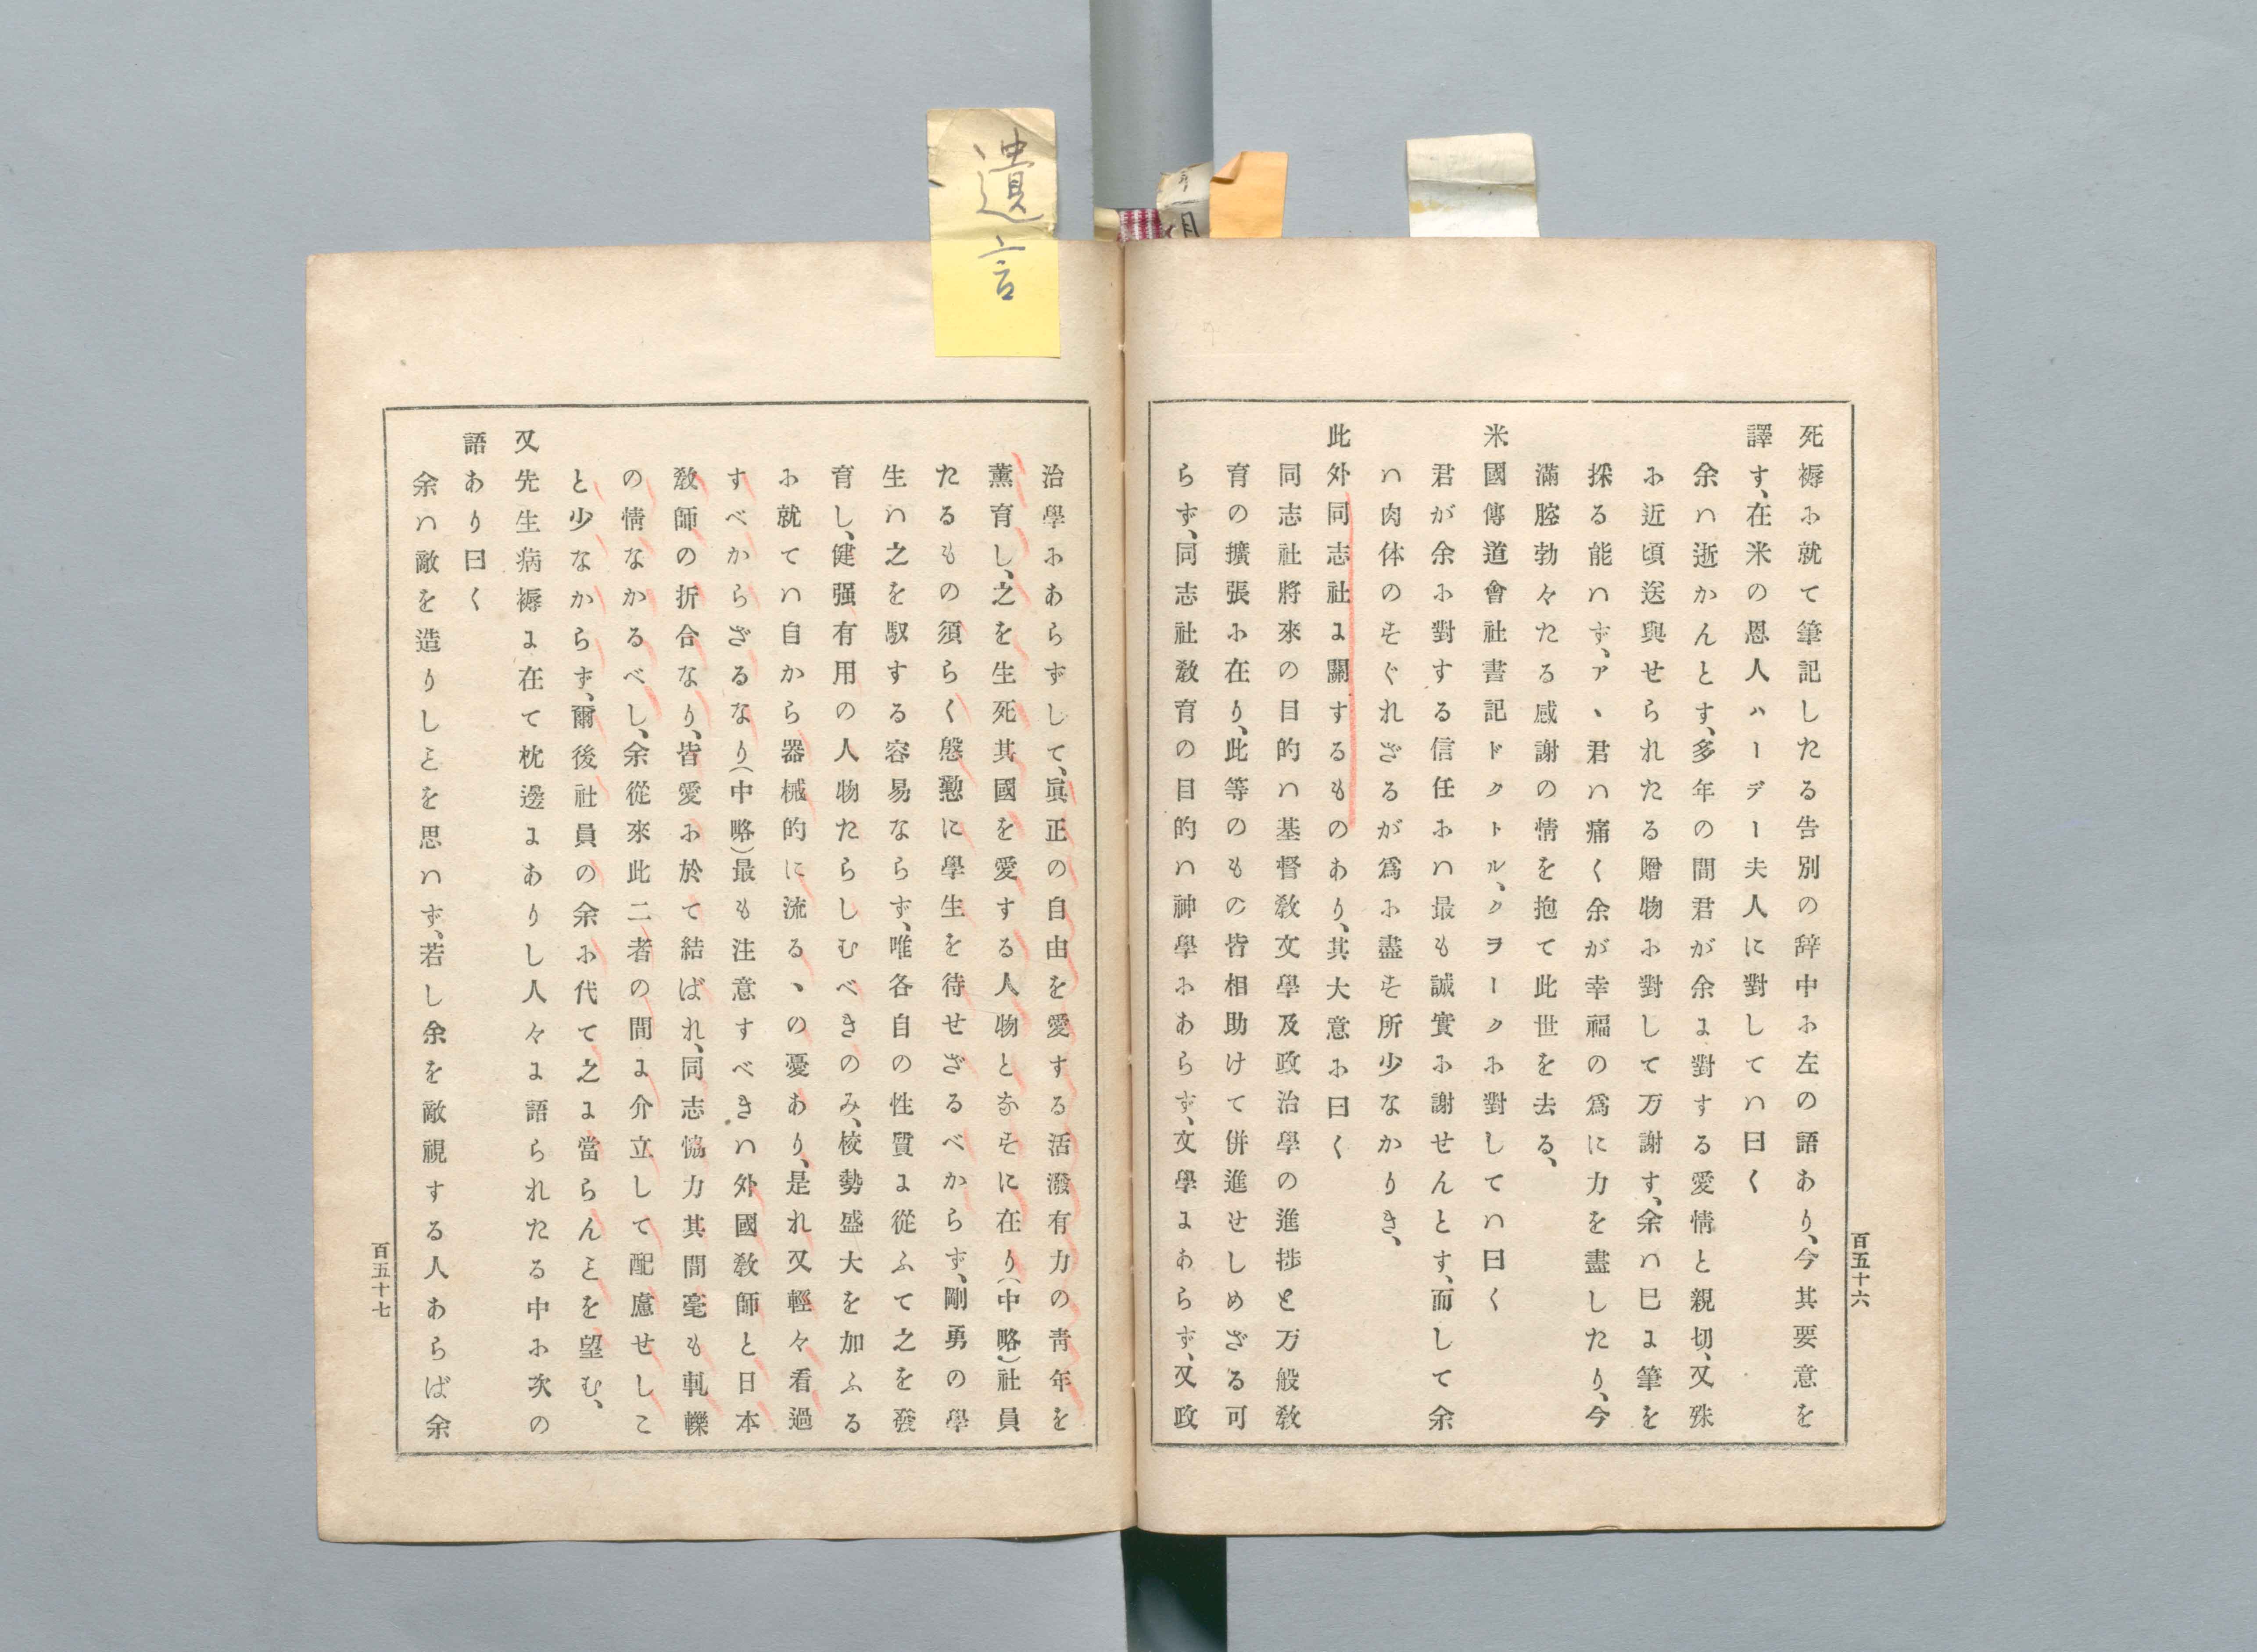 死褥に就て筆記したる告別の辞中に左の語あり、今其要意を
譯す、在米の恩人ハーデー夫人に對してハ曰く
余ハ逝かんとす、多年の間君が余に對する愛情と親切、又殊
に近頃送與せられたる贈物に對して万謝す、余ハ已に筆を
採る能ハず、アヽ君ハ痛く余が幸福の爲に力を盡したり、今
滿腔勃々たる感謝の情を抱て此世を去る、
米國傳道會社書記ドクトル、クヲークに對してハ曰く
君が余に對する信任にハ最も誠實に謝せんとす、而して余
ハ肉体のそぐれざるが爲に盡そ所少なかりき、
此外同志社に關するものあり、其大意に曰く
同志社將來の目的ハ基督敎文學及政治學の進捗と万般敎
育の擴張に在り、此等のもの皆相助けて併進せしめざる可
らず、同志社敎育の目的ハ神學にあらず、文學にあらず、又政
百五十六
遺言
治學にあらずして、眞正の自由を愛する活潑有力の靑年を
薰育し、之を生死其國を愛する人物となそに在り(中略)社員
たるもの須らく慇懃に學生を待せざるべからず、剛勇の學
生ハ之を馭する容易ならず、唯各自の性質に從ふて之を發
育し、健强有用の人物たらしむべきのみ、校勢盛大を加ふる
に就てハ自から器械的に流るヽの憂あり、是れ又輕々看過
すべからざるなり(中略)最も注意すべきハ外國敎師と日本
敎師の折合なり、皆愛に於て結ばれ、同志恊力其間毫も軋轢
の情なかるべし、余從來此二者の間に介立して配慮せしこ
と少なからず、爾後社員の余に代て之に當らんヿを望む、
又先生病褥に在て枕邊にありし人々に語られたる中に次の
語あり曰く
余ハ敵を造りしヿを思ハず、若し余を敵視する人あらば余
百五十七